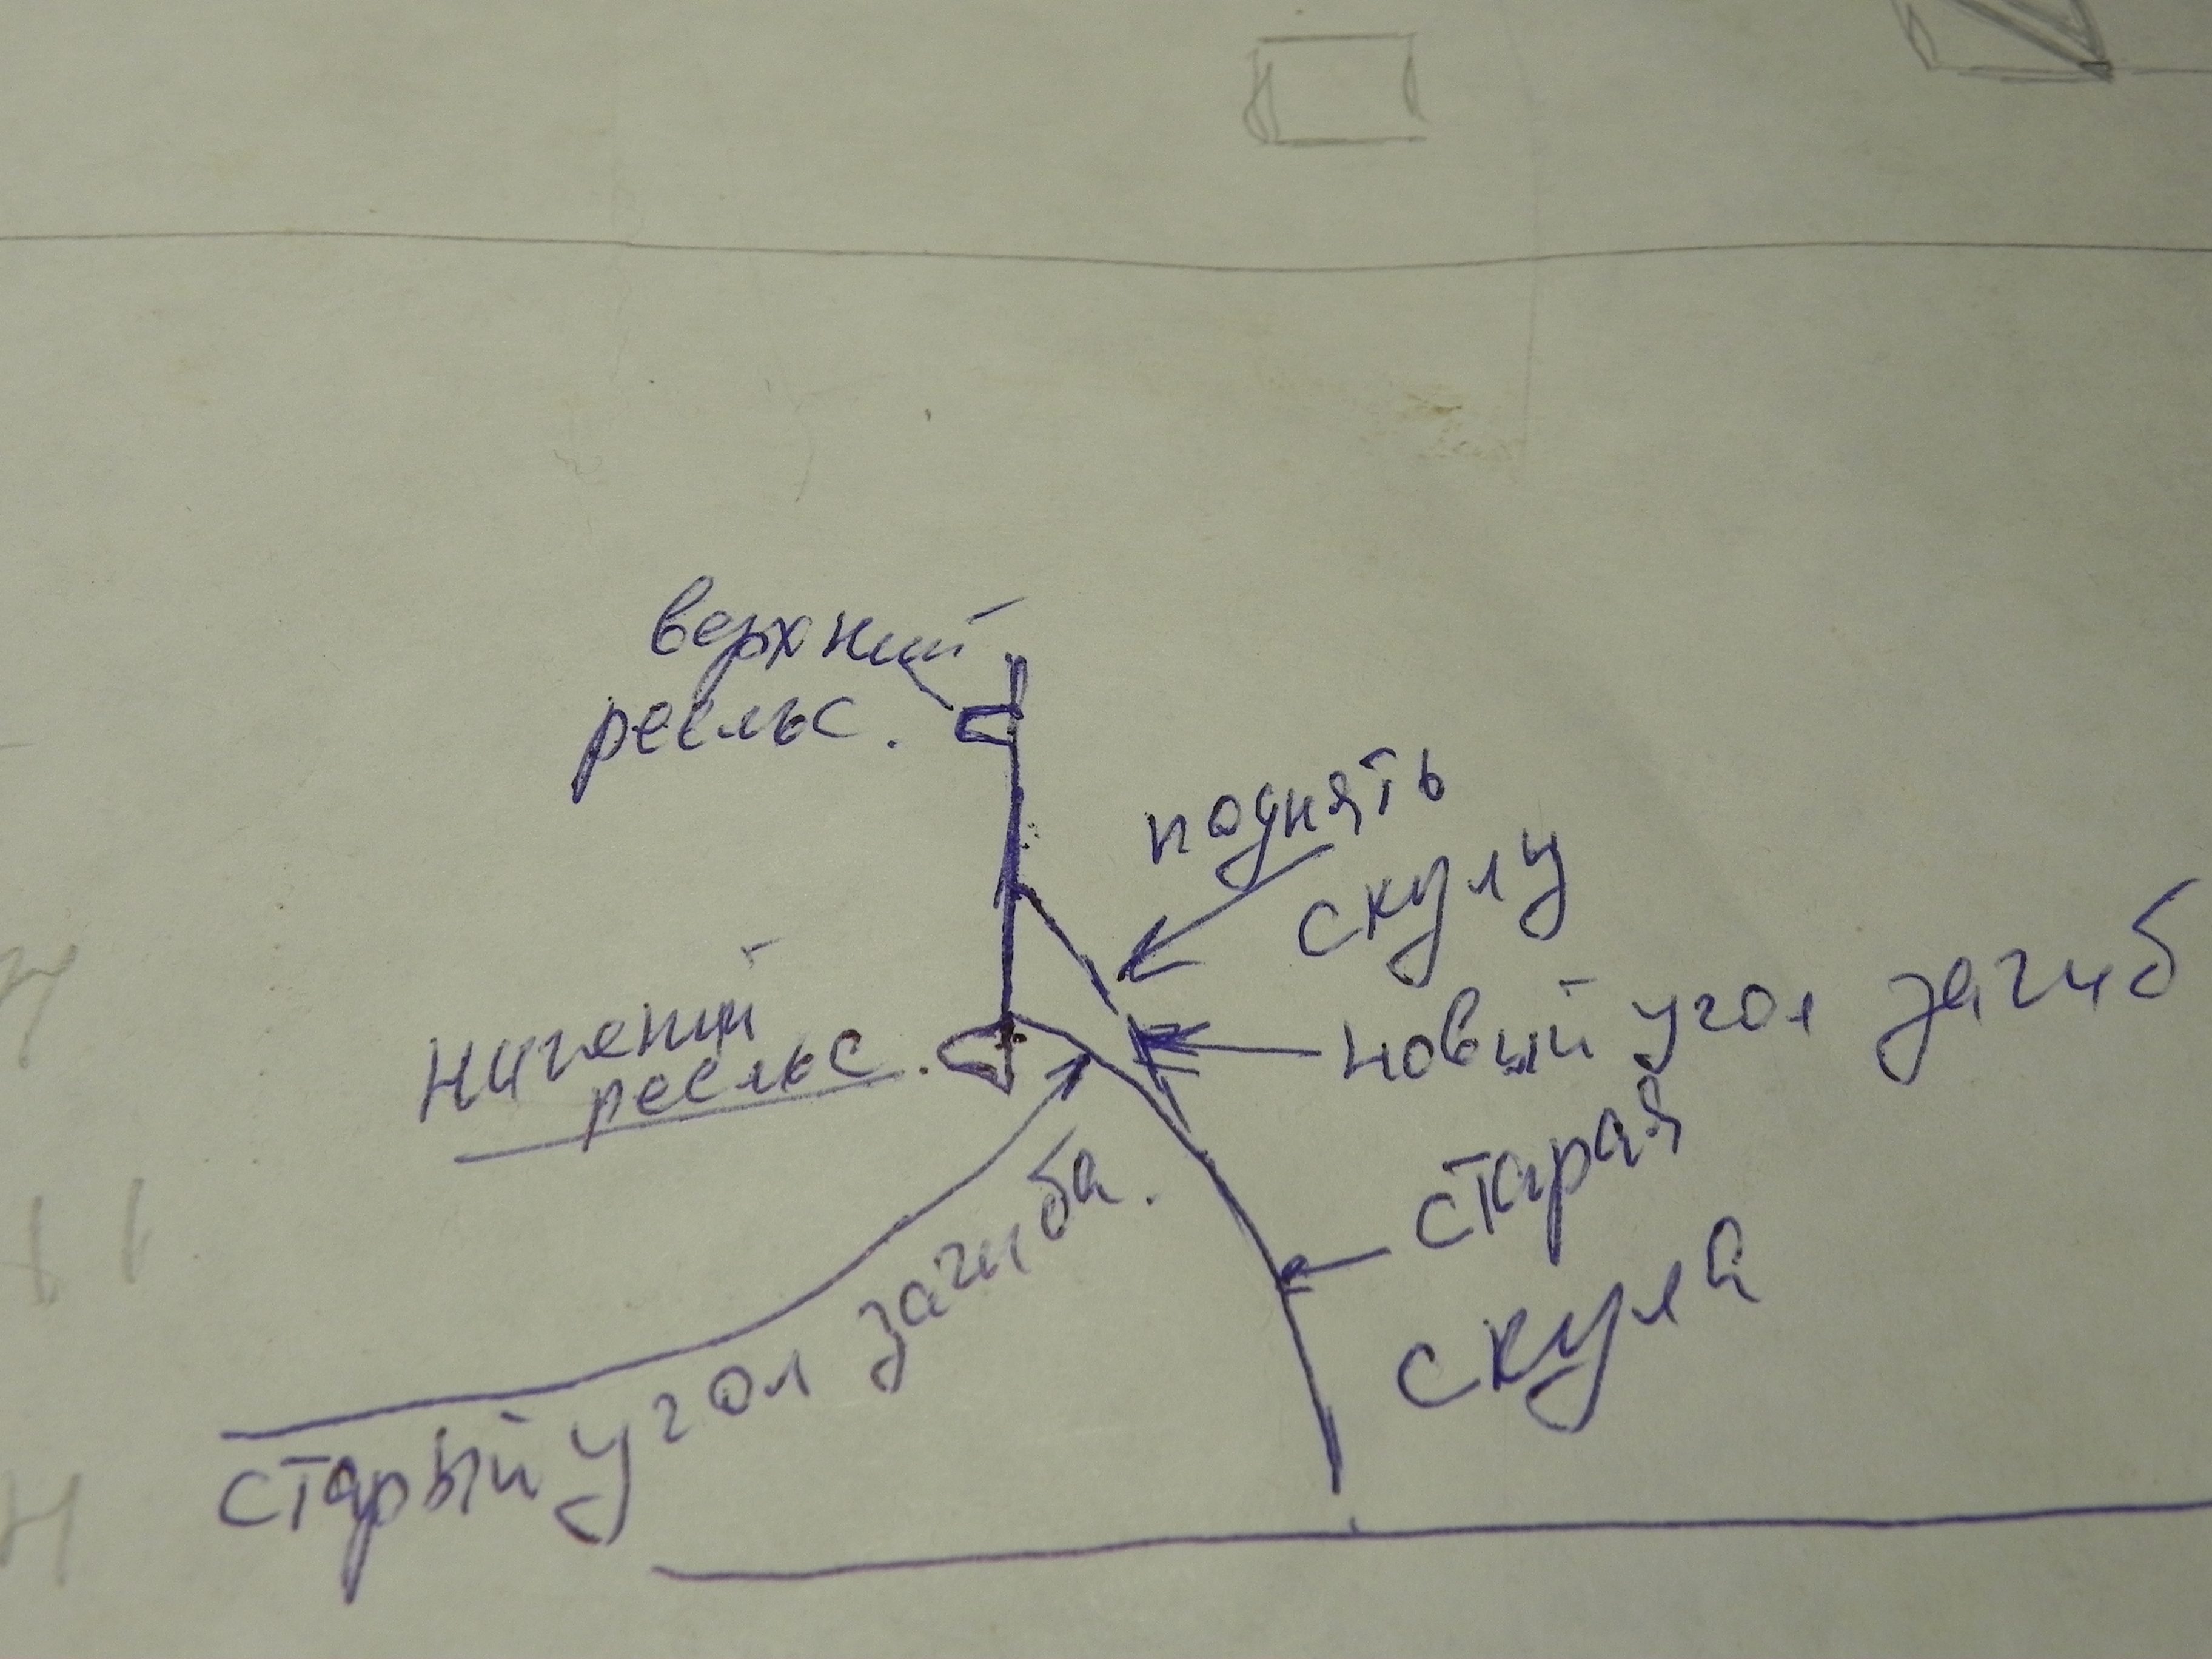 верхний
рельс.
поднять
скулу
нижний
рельс.
новый угол загиб
старая
скула
старый угол загиба.